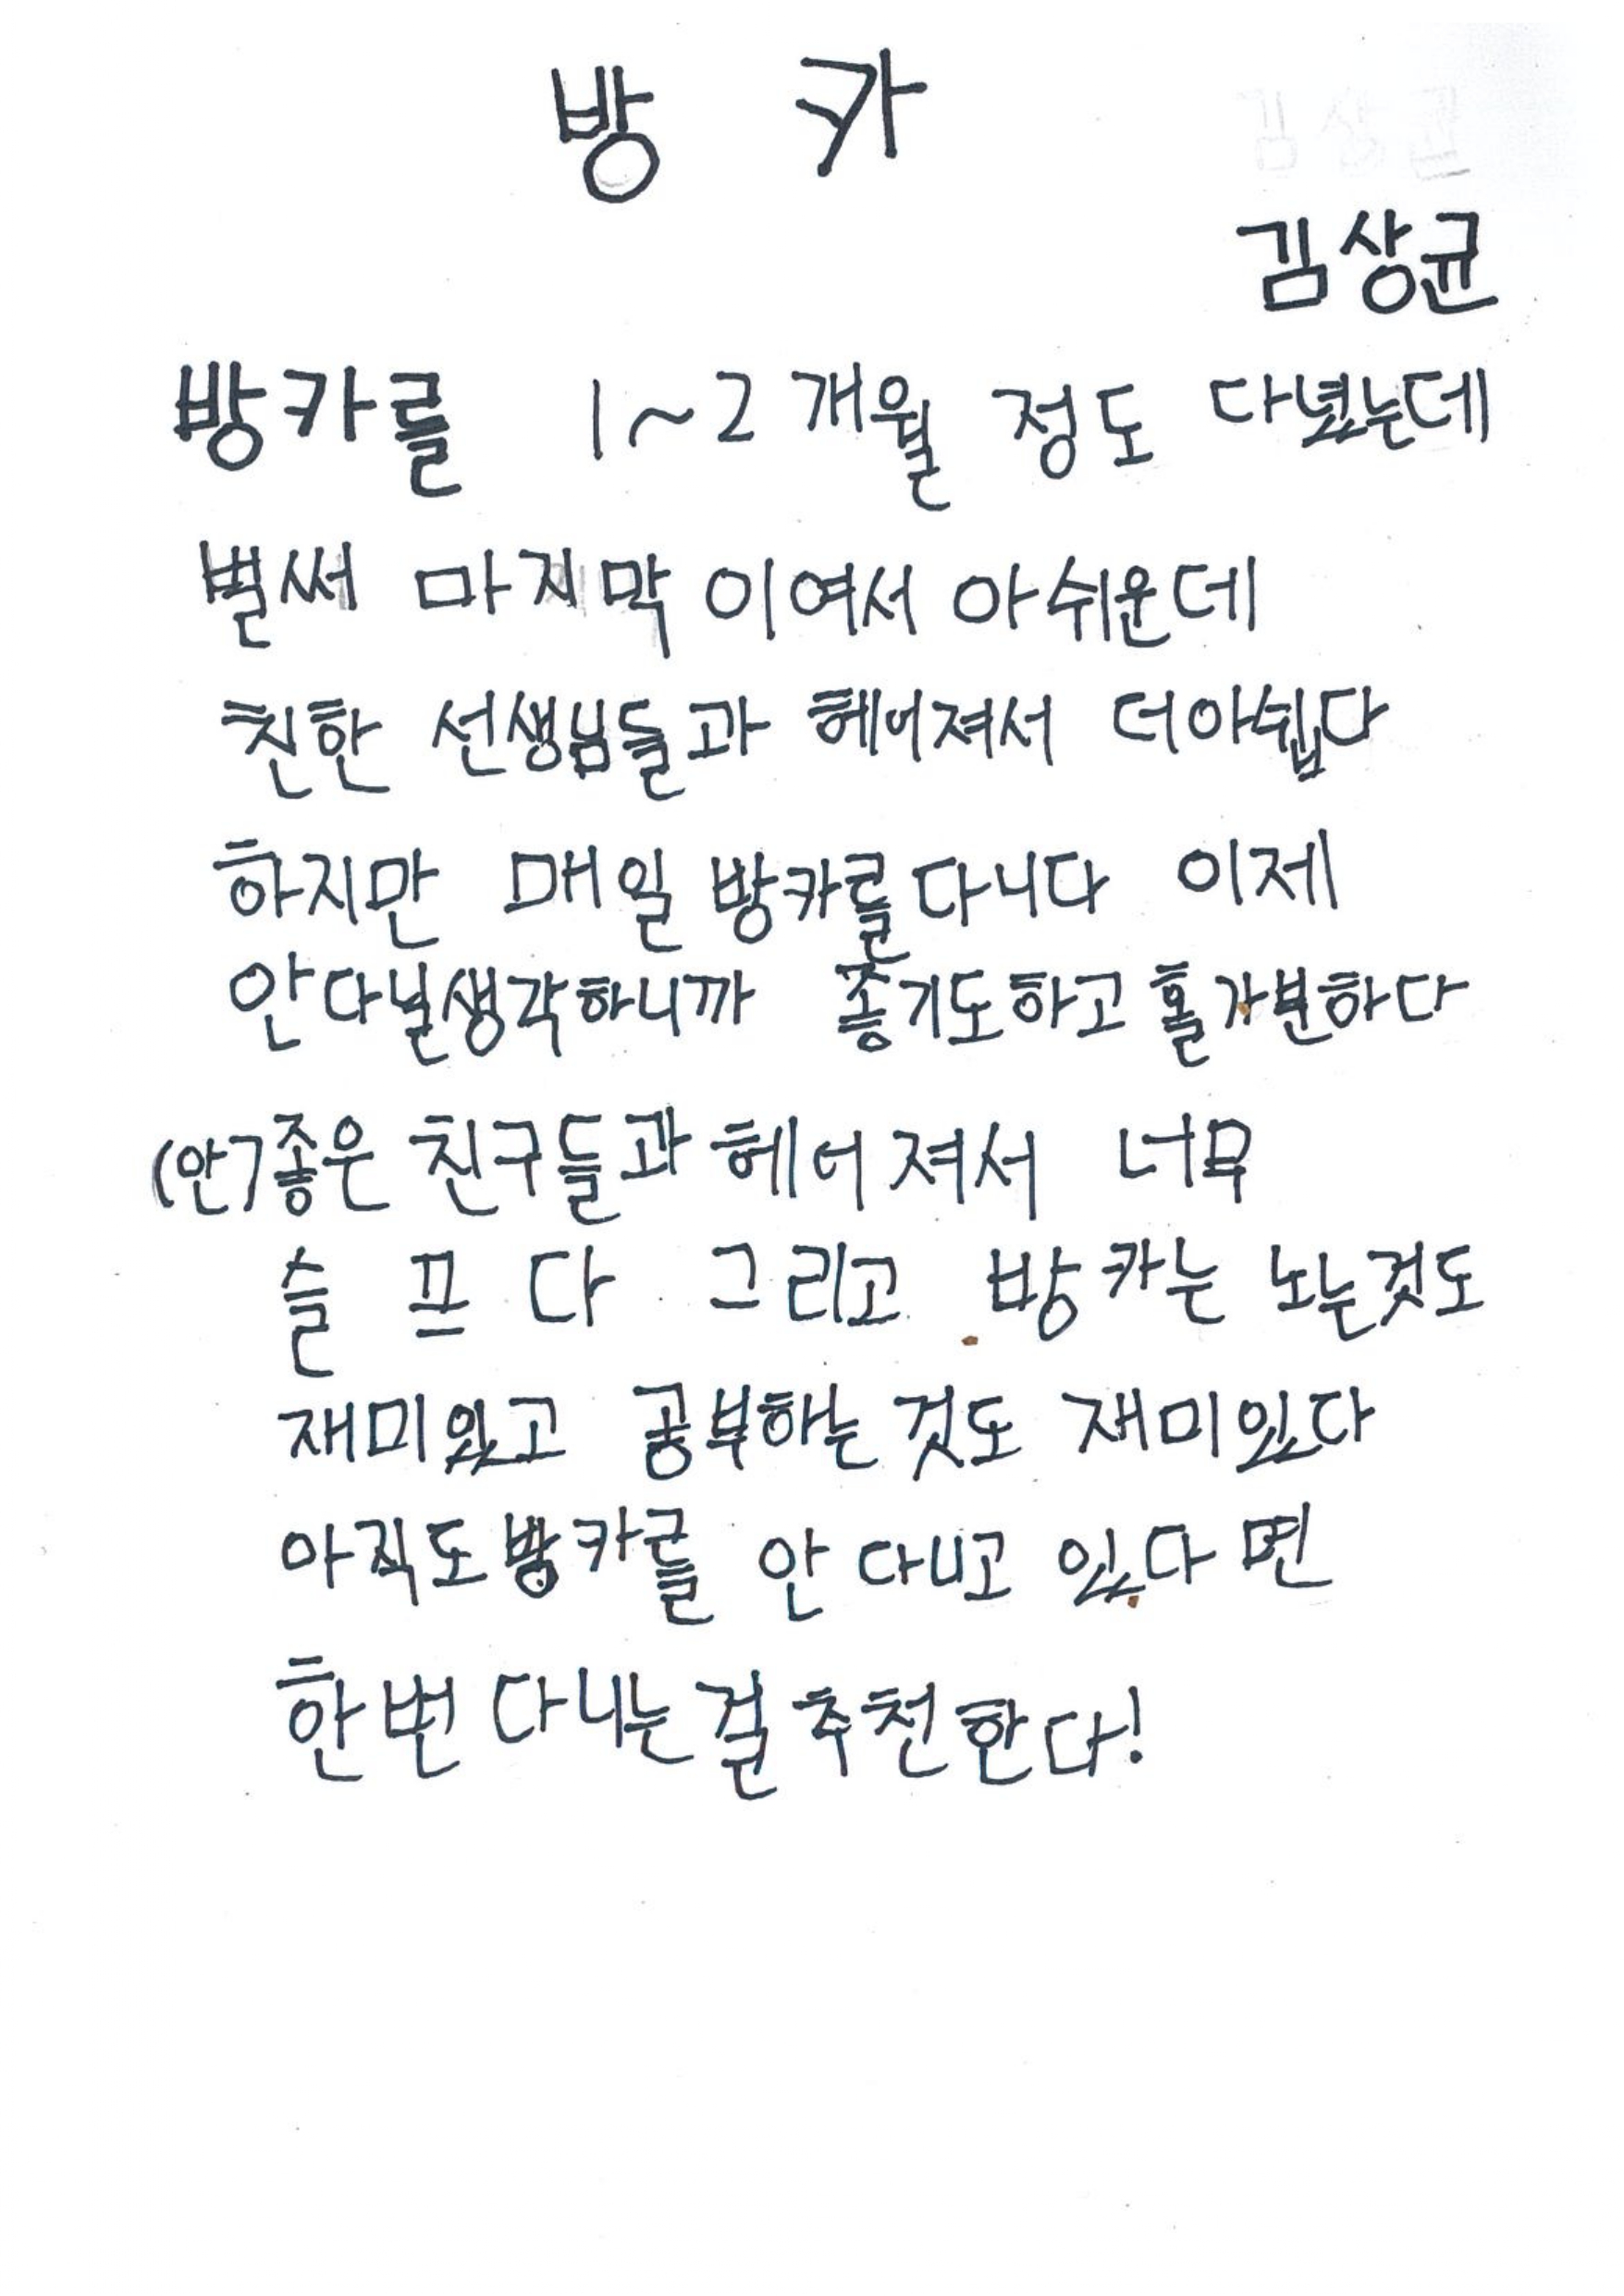 방 카
김상균
방카를 1~2개월 정도 다녔는데
벌써 마지막 이여서 아쉬운데
친한 선생님들과 헤어져서 더아쉽다
하지만 매일 방카를다니다 이제
안다닐생각하니까 좋기도하고 홀가분하다
(안7좋은 친구들과 헤어져서 너무
슬프다 그리고 방카는 노는것도
재미있고 공부하는 것도 재미있다
아직도방카를 안다니고 있다면
한번다니는걸추천한다!